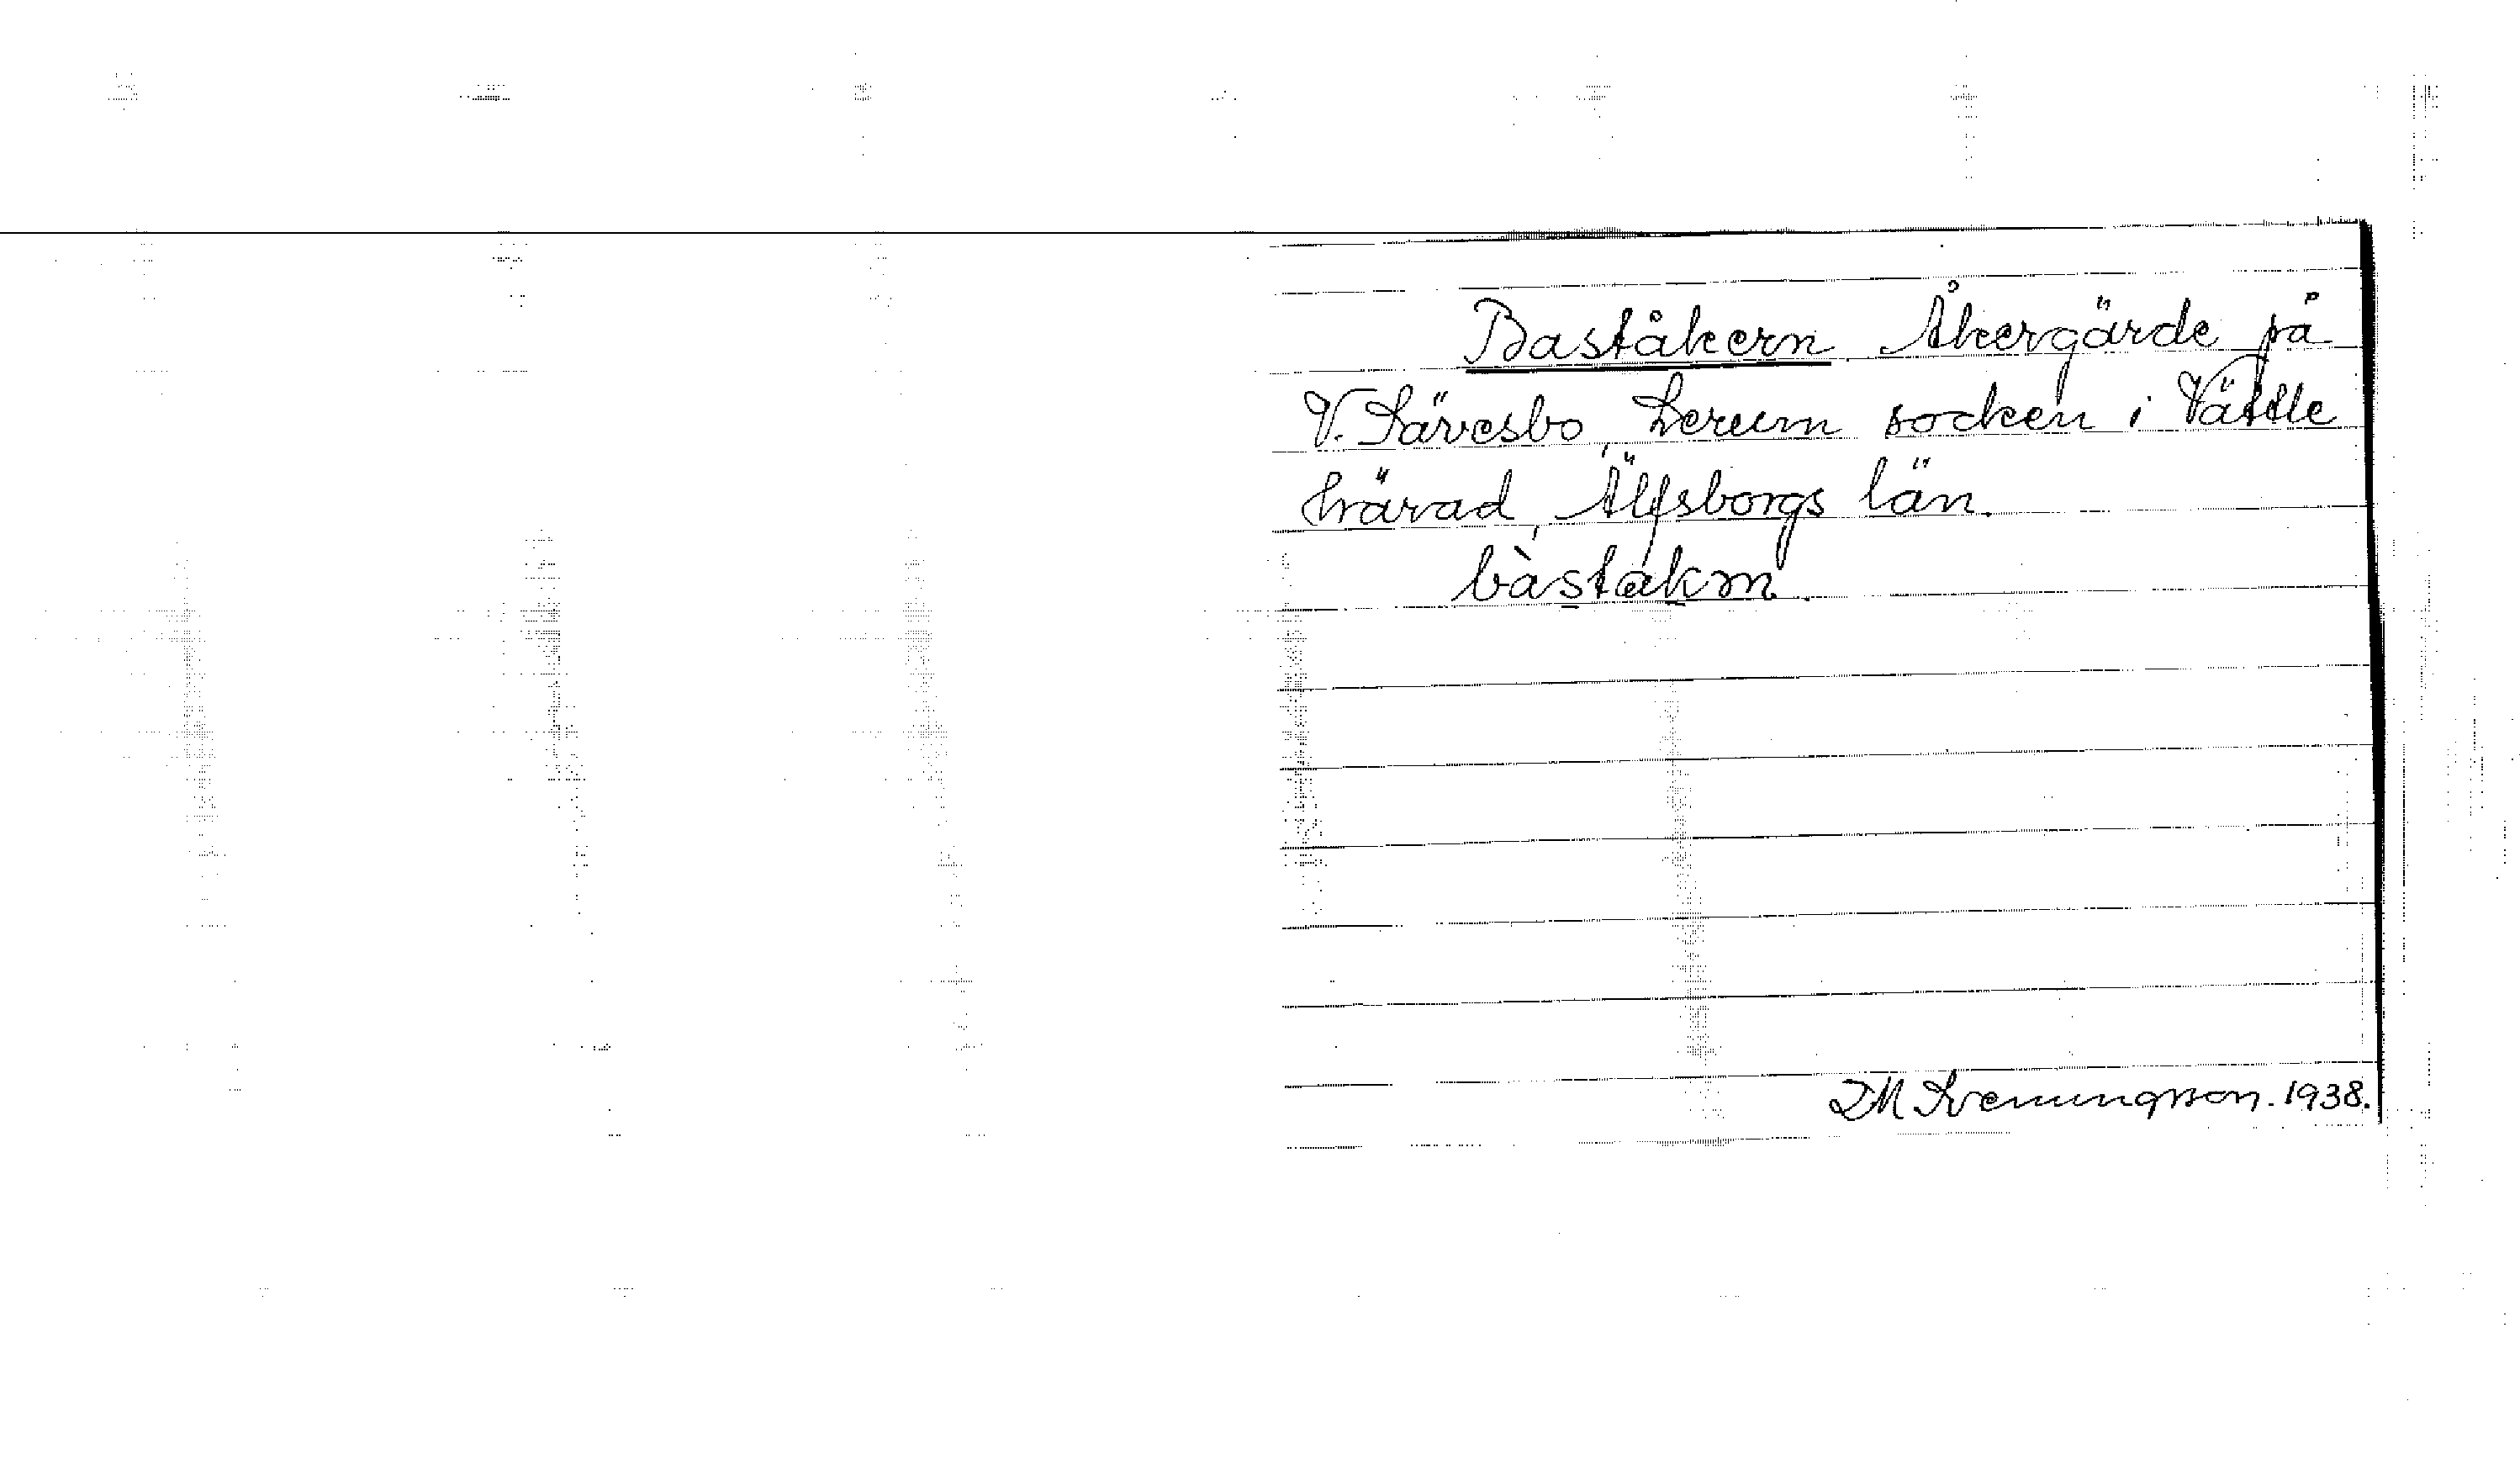 Baståkern. Åkergärde på
V. Sävesbo, Lerum socken i Vättle
härad, Älfsborgs län.
bàståkm.
D.M Svenungsson. 1938.